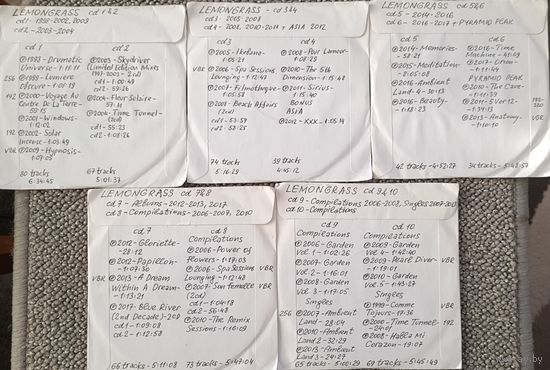 LEMONGRASS - cd 1&2
cd1 - 1998-2002, 2009
cd2 - 2003-2004
cd 1
℗1998-Dramatic
Universe-1:15:11
256 ℗1999-Lumiere
Obscure-1:07:19
192 ℗2000-Voyage Au
Centre De La Terre-
55:15
℗2001-Windows-
1:12:02
192 ℗2002-Solar
Income-1:03:49
VBR ℗2009-Hypnosis-
1:07:03
80 tracks
6:34:45
cd 2
℗2003-Skydiver
(Limited Edition Bonus
1997-2003 - 2cd)
cd1-1:00:49
cd2-59:26
℗2004-Fleur Solaire-
59:11
℗2004-Time Tunnel-
(2cd)
cd1-55:23
cd2-1:08:26
67 tracks
5:01:37
LEMONGRASS - cd 3&4
cd3 - 2005-2008
cd4 - 2008, 2010-2011 + ASIA 2012
cd 3
℗2005-Ikebana-
1:05:21
VBR ℗2006-Spa Sessions
Lounging-1:12:49
℗2007-Filmothèque-
1:05:58
℗2008-Beach Affairs
(2cd)
cd1-53:52
cd2-58:25
74 tracks
5:16:29
cd 4
℗2008-Pour Lamour-
1:08:29
℗2010-The 5th
Dimension-1:15:48
℗2011-Sirius-
1:15:40
BONUS
ASIA
℗2012-XXX-1:05:14
59 tracks
4:45:12
LEMONGRASS - cd 5&6
cd5 - 2014-2016
cd6 - 2016-2017 + PYRAMID PEAK
cd 5
℗2014-Memories-
58:21
℗2015-Meditation-
2:05:08
℗2016-Ambient
Land-4-30:13
℗2016-Beauty-
1:18:23
42 tracks-4:52:27
cd 6
℗2016-Time
Machine-41:09
℗2017-Orion-
1:11:49
PYRAMID PEAK
℗2010-The Cave-
1:11:39
℗2011-5Vor12-
1:34:13
℗2013-Anatomy-
1:10:10
192-320
VBR
34 tracks-5:48:57
LEMONGRASS - cd 7&8
cd7 - Albums-2012-2013, 2017
cd8 - Compilations-2006-2007, 2010
cd 7
℗2012-Gloriette-
28:12
℗2012-Papillon-
1:07:30
VBR ℗2013-A Dream
Within A Dream-
1:13:21
℗2017-Blue River
(2nd Decade)-2CD
cd1-1:09:08
cd2-1:12:58
66 tracks-5:11:08
cd 8
Compilations
℗2006-Power of
Flowers-1:17:03
℗2006-Spa Sessions
Lounging-1:12:48
℗2007-Sun Femelle
(2cd)
cd1-1:04:18
cd2-56:48
℗2010-The Remix
Sessions-1:16:09
VBR
VBR
73 tracks-5:47:04
LEMONGRASS - cd 9&10
cd9 - Compilations 2006-2008, Singles 2007-2013
cd10 - Compilations
cd 9
Compilations
℗2006-Garden
Vol 1-1:02:26
℗2007-Garden
Vol 2-1:16:01
℗2008-Garden
Vol 3-1:17:05
Singles
256 ℗2007-Ambient
Land-28:04
℗2010-Ambient
Land 2-32:29
℗2013-Ambient
Land 3-24:27
65 tracks-5:00:29
cd 10
℗2009-Garden
Vol 4-1:42:40
℗2009-Pearl Diver-
-1:19:01
℗2010-Garden
Vol 5-1:43:27
Singles
℗1999-Comme
Toujours-17:36
℗2000-Time Tunnel-
24:01
℗2008-Habla Mi
Corazon-19:07
VBR
VBR
192
69 tracks-5:45:49